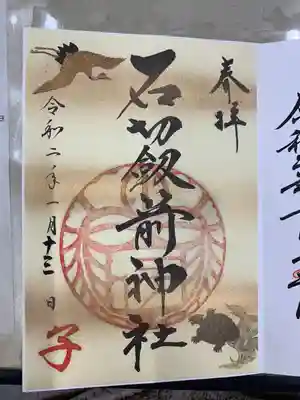 奉拝
石切劔箭神社
令和二年一月十三日
子